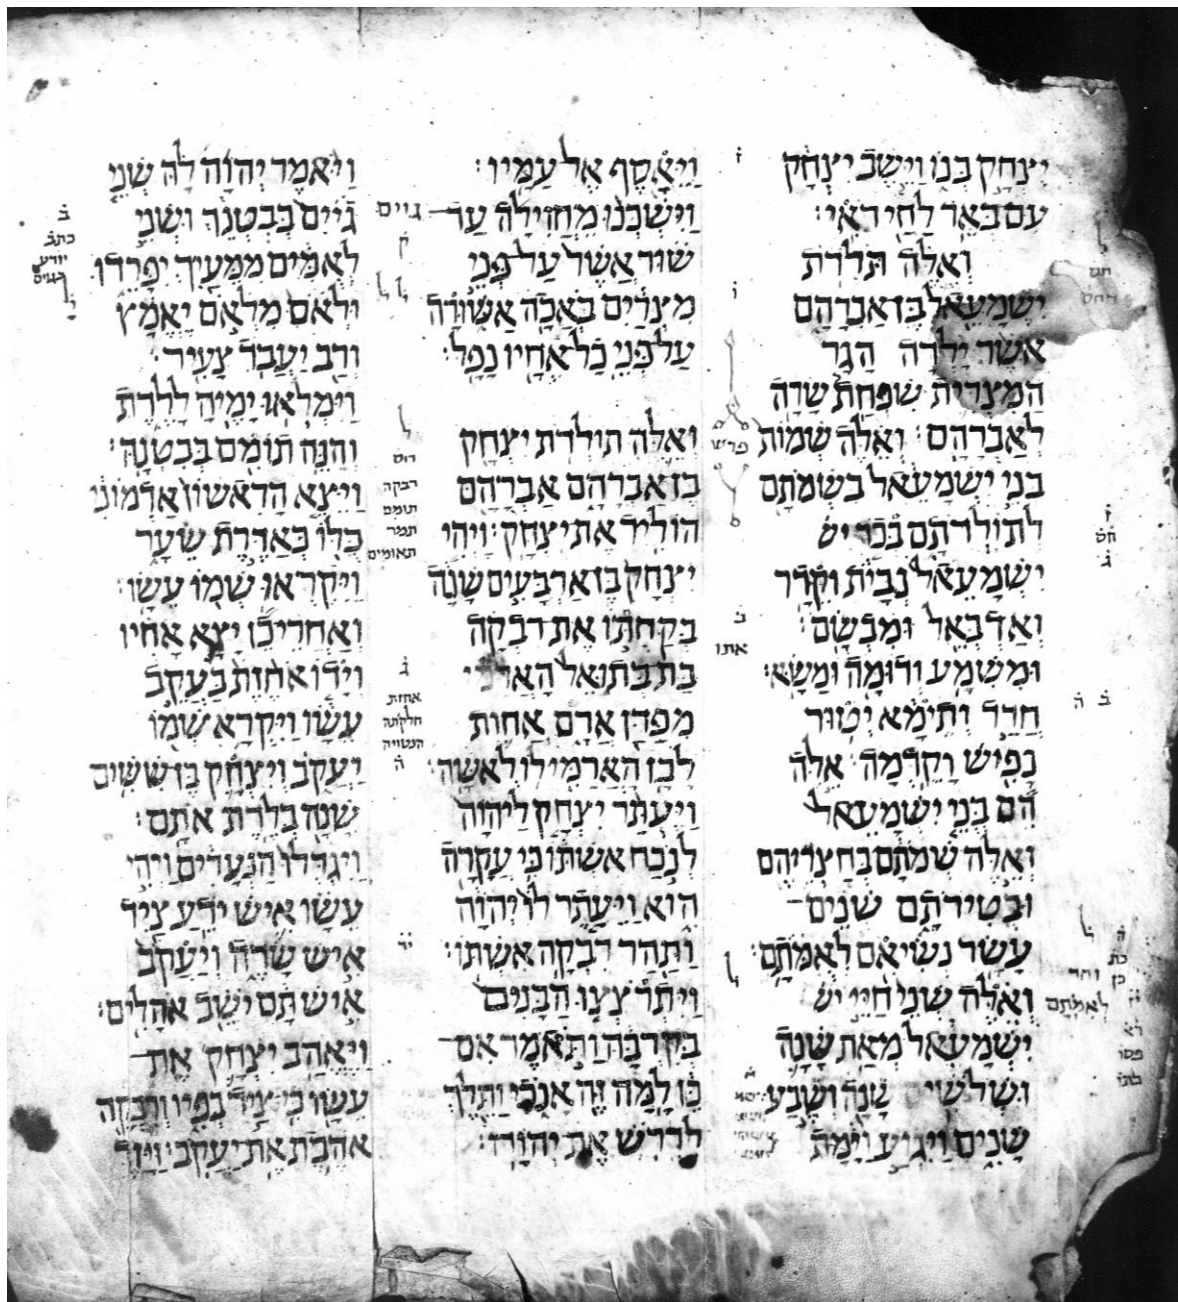 יצחק בנו וישב יצחק
עם באר לחי ראי׃
ואלה תלדת
ישמעאל בן אברהם
אשר ילדה הגר
המצרית שפחת שרה
לאברהם׃ ואלה שמות
בני ישמעאל בשמתם
לתולדתם בכר יש
ישמעאל נבית וקדר
ואדבאל ומבשם׃
ומשמע ודומה ומשא׃
חדד ותימא יטור
נפיש וקדמה׃ אלה
הם בני ישמעאל
ואלה שמתם בחצריהם
ובטירתם שנים
עשר נשיאם לאמתם׃
ואלה שני חיי יש
ישמעאל מאת שנה
ושלשים שנה ושבע
שנים ויגוע וימת
ויאסף אל עמיו׃
וישכנו מחוילה עד
שור אשר על פני
מצרים באכה אשורה
על פני כל אחיו נפל׃
ואלה תולדת יצחק
בן אברהם אברהם
הוליד את יצחק׃ ויהי
יצחק בן ארבעים שנה
בקחתו את רבקה
בת בתואל הארמי
מפדן ארם אחות
לבן הארמי לו לאשה׃
ויעתר יצחק ליהוה
לנכח אשתו כי עקרה
הוא ויעתר לו יהוה
ותהר רבקה אשתו׃
ויתרצצו הבנים
בקרבה ותאמר אם
כן למה זה אנכי ותלך
לדרש את יהוה׃
ויאמר יהוה לה שני
גיים בבטנך ושני
לאמים ממעיך יפרדו
ולאם מלאם יאמץ
ורב יעבד צעיר׃
וימלאו ימיה ללדת
והנה תומם בבטנה׃
ויצא הראשון אדמוני
כלו כאדרת שער
ויקראו שמו עשו׃
ואחרי כן יצא אחיו
וידו אחזת בעקב
עשו ויקרא שמו
יעקב ויצחק בן ששים
שנה בלדת אתם׃
ויגדלו הנערים ויהי
עשו איש ידע ציד
איש שדה ויעקב
איש תם ישב אהלים׃
ויאהב יצחק את
עשו כי ציד בפיו ורבקה
אהבת את יעקב׃ ויזד
פרש
אתו
לאמתם
גויים
ק
רבקה
תומם
תמר
תאומים
אחזת
ב
כתב
יודע